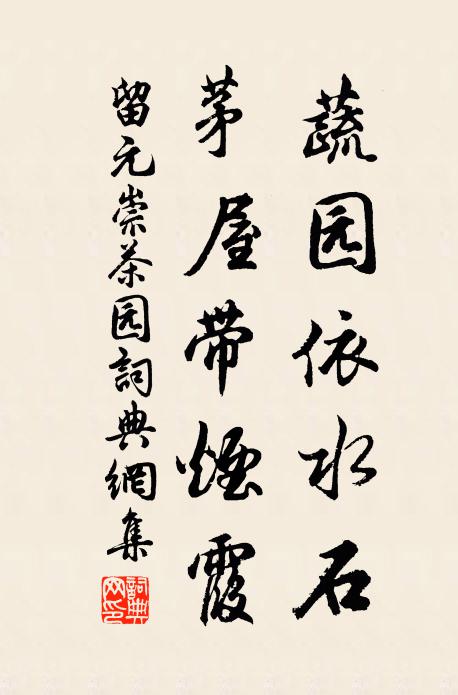 蔬园依水石
茅屋带煙霞
留元崇茶园詞典網集
詞典
网印